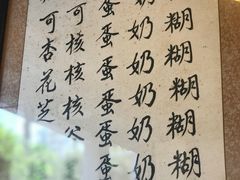 糊糊糊糊糊
奶奶奶奶奶
蛋蛋蛋蛋蛋蛋
可核核核公
可杏花芝